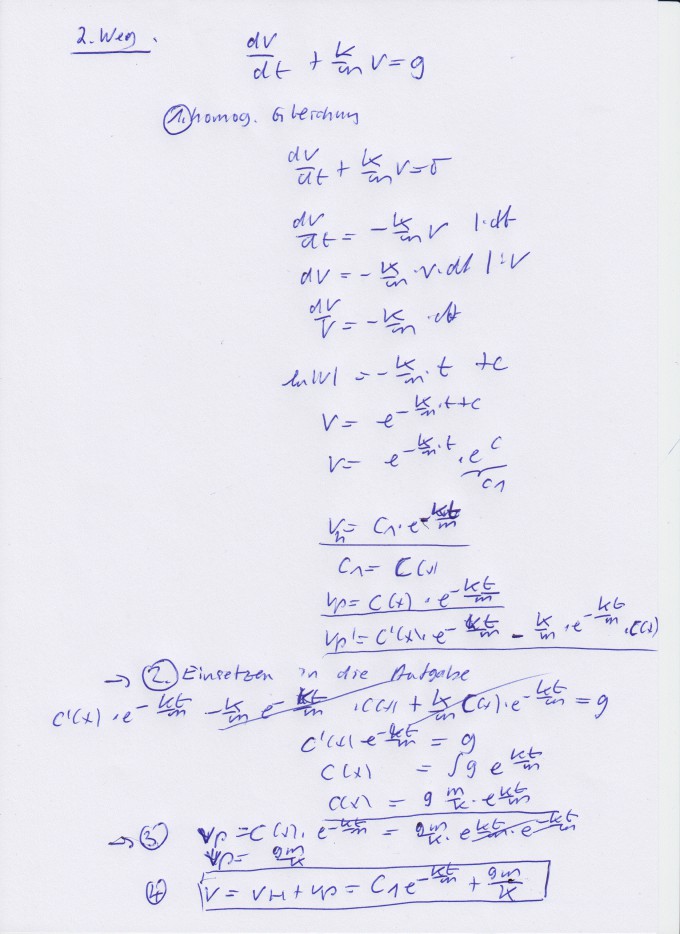 2. Weg.
dv/dt + k/m v = g
1. homog. Gleichung
dv/dt + k/m v = 0
dv/dt = - k/m v |·dt
dv = - k/m · v · dt |: v
dv/v = - k/m · dt
ln|v| = - k/m · t + c
v = e^(- k/m · t + c)
v = e^(- k/m · t) · e^c
c1
v_h = C1 · e^(- kt/m)
C1 = C(x)
vp = C(x) · e^(- kt/m)
vp' = C'(x) · e^(- kt/m) - k/m · e^(- kt/m) · C(x)
→ 2. Einsetzen in die Aufgabe
C'(x) · e^(- kt/m) - k/m e^(- kt/m) · C(x) + k/m C(x) · e^(- kt/m) = g
C'(x) e^(- kt/m) = g
C(x) = ∫ g e^(kt/m)
C(x) = g m/k · e^(kt/m)
→ 3 vp = C(x) · e^(- kt/m) = gm/k · e^(kt/m) · e^(- kt/m)
vp = gm/k
4 v = vH + vp = C1 e^(- kt/m) + gm/k